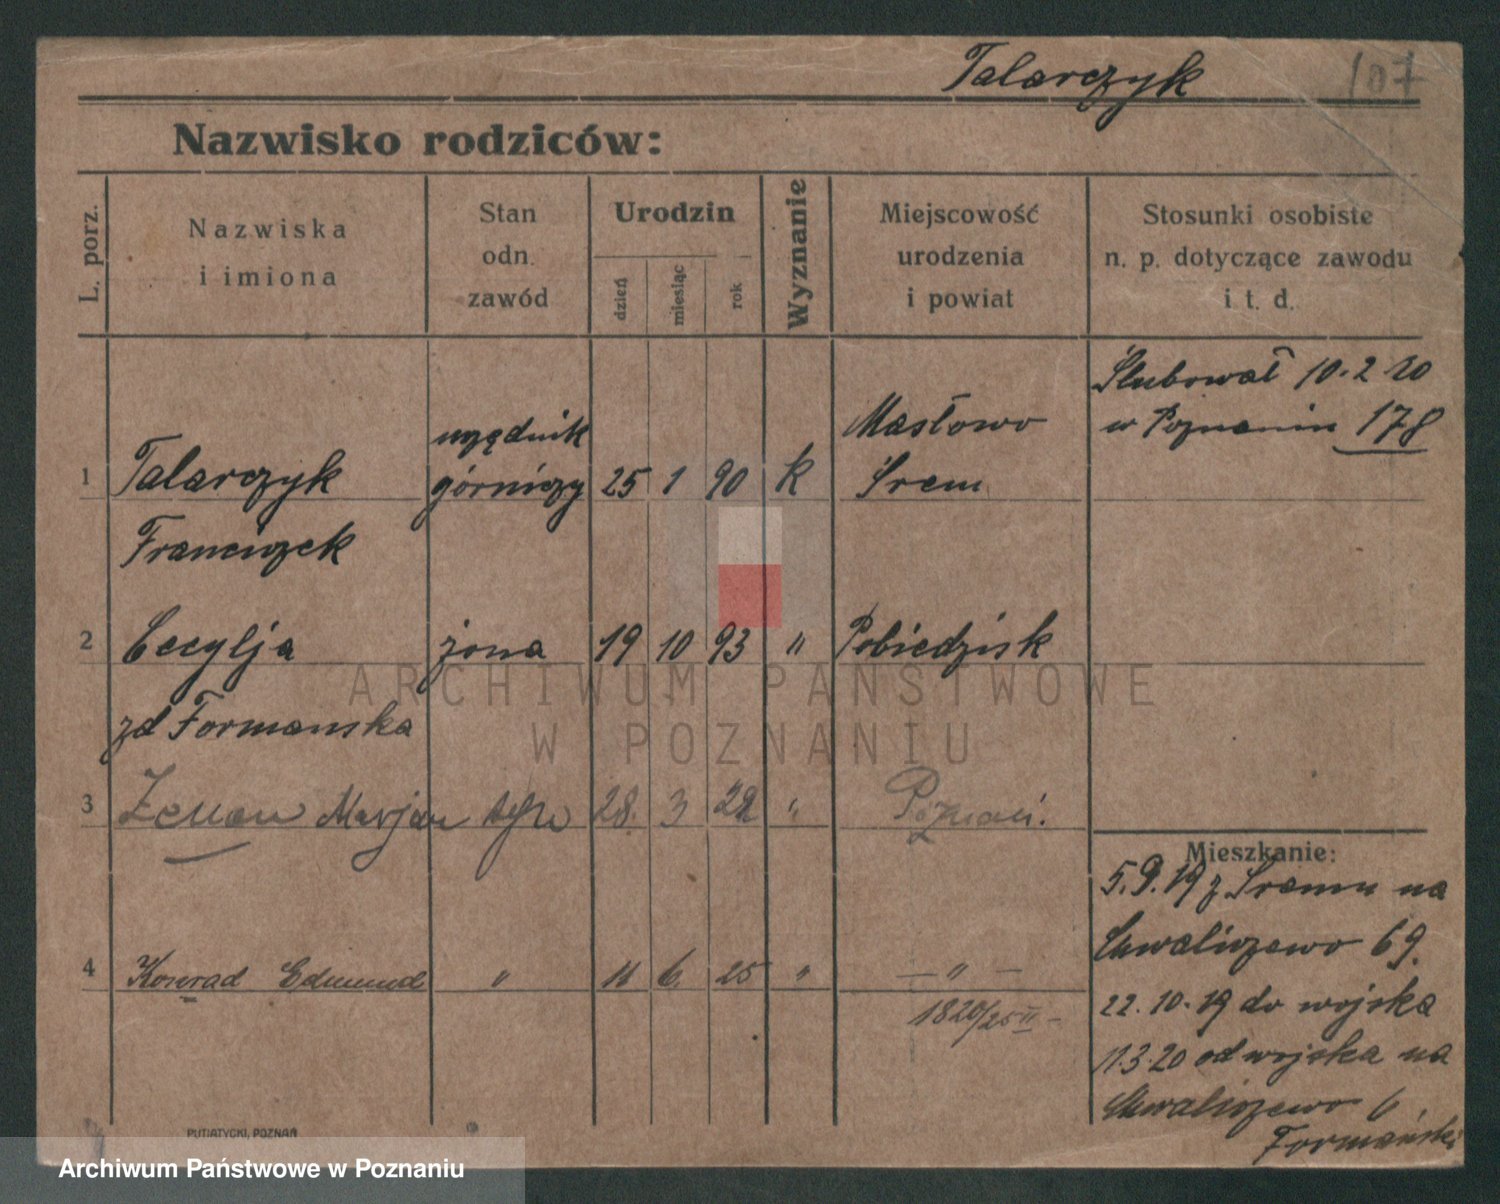 Talarczyk 107
Nazwisko rodziców:
L. porz.
Nazwiska
i imiona
Stan
odn.
zawód
Urodzin
dzień
miesiąc
rok
Wyznanie
Miejscowość
urodzenia
i powiat
Stosunki osobiste
n. p. dotyczące zawodu
i t. d.
Ślubował 10.2.20
w Poznaniu 178
urzędnik Masłowo
1 Talarczyk górniczy 25 1 90 k Śrem
Franciszek
2 Cecylja żona 19 10 93 " Pobiedzisk
zd Formanska
3 Zenon Marjan syn 28. 3 22 " Poznań.
4 Konrad Edmund " 11 6. 25 " — " —
1820/25 II —
Mieszkanie:
5.9.19 z Śremu na
Chwaliszewo 69.
22.10.19 do wojska
11.3.20 od wojska na
Chwaliszewo 6
Formański
PUTIATYCKI, POZNAŃ
ARCHIWUM PAŃSTWOWE
W POZNANIU
Archiwum Państwowe w Poznaniu